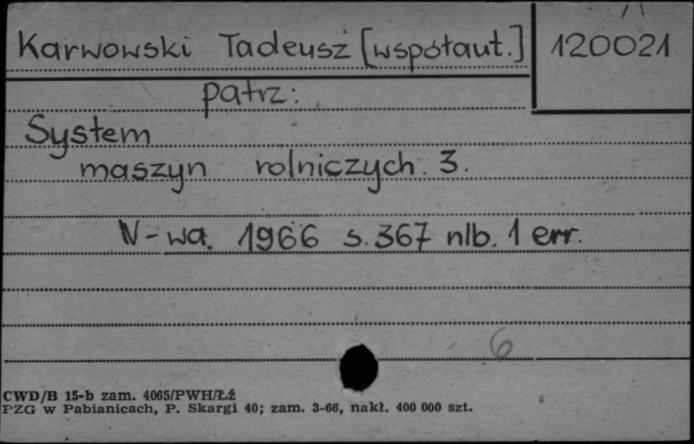 Karwowski Tadeusz [współaut.] 120021
patrz:
System
maszyn rolniczych. 3.
W-wa. 1966 s. 367 nlb. 1 err.
6
CWD/B 15-b zam. 4065/PWH/ŁŹ
PZG w Pabianicach, P. Skargi 40; zam. 3-66, nakł. 400 000 szt.